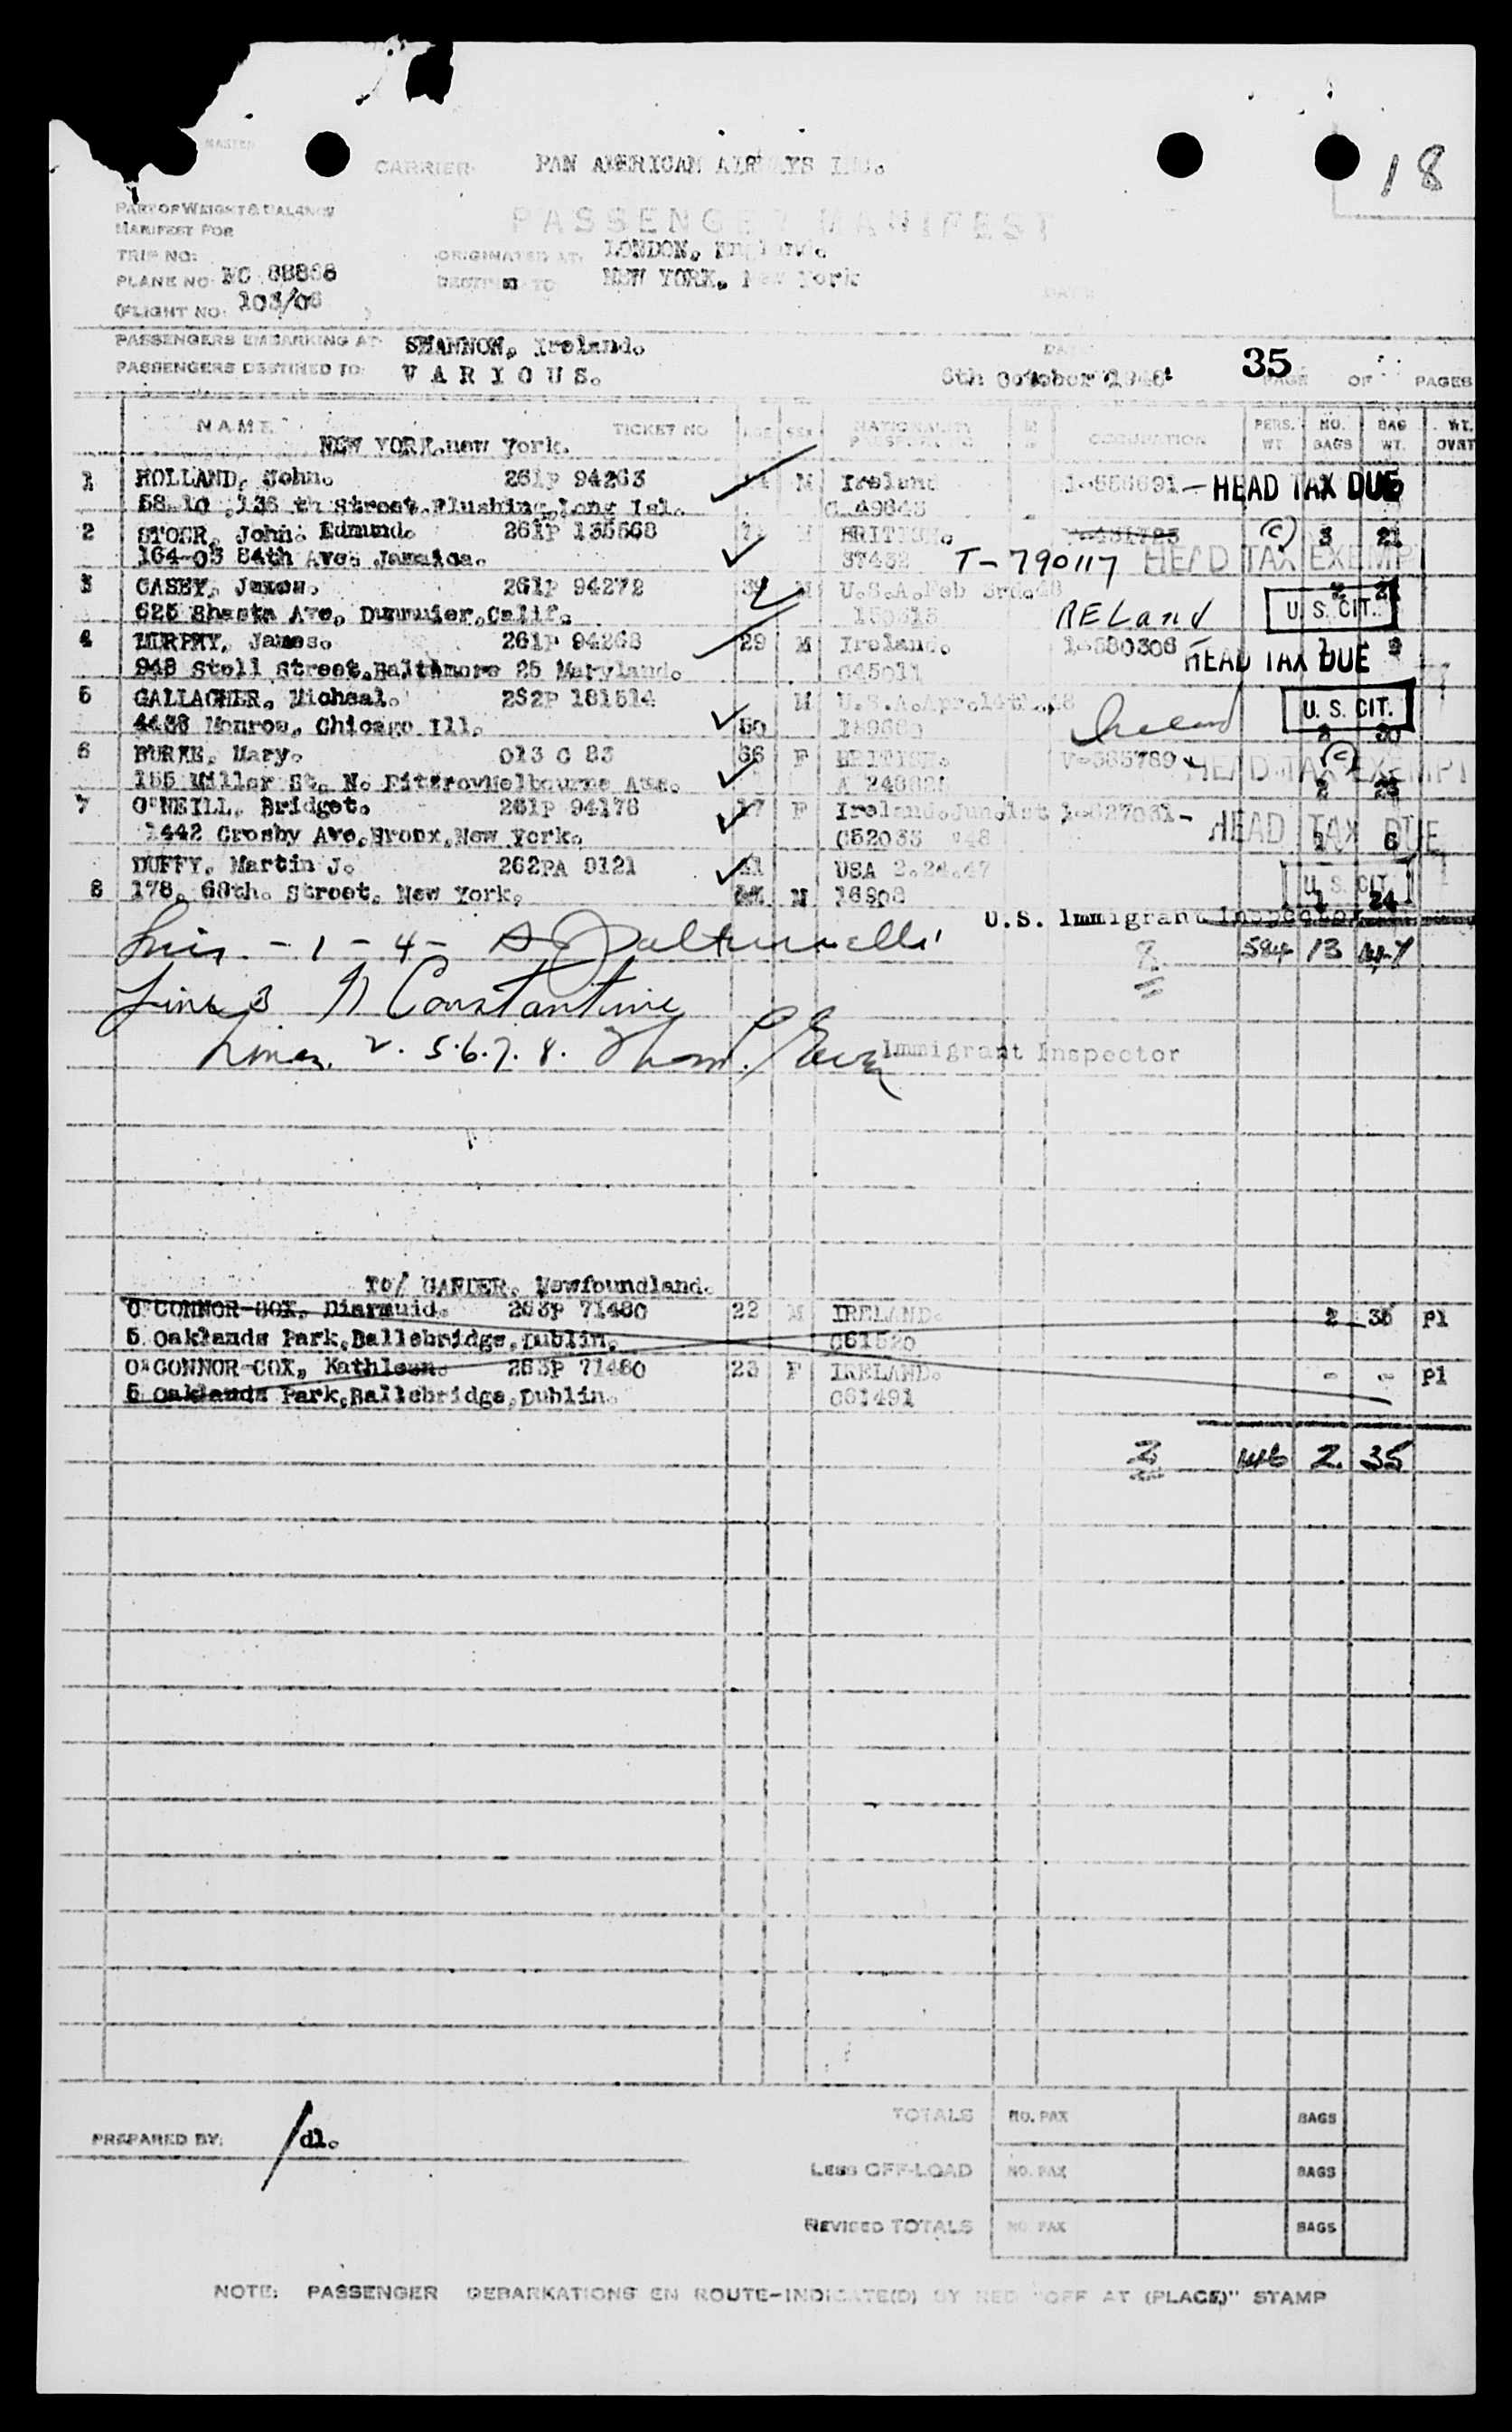 MASTER
CARRIER: PAN AMERICAN AIRWAYS INC.
18
PART OF WEIGHT & BALANCE
MANIFEST FOR
PASSENGER MANIFEST
TRIP NO:
ORIGINATED AT: LONDON, England.
PLANE NO: NC 88868
DESTINED TO: NEW YORK, New York
(FLIGHT NO: 103/06 )
PASSENGERS EMBARKING AT: SHANNON, Ireland.
DATE
PASSENGERS DESTINED TO: V A R I O U S.
6th October 1946
35
PAGE OF PAGES
NAME TICKET NO AGE SEX NATIONALITY PASSPORT NO. OCCUPATION PERS. WT. NO. BAGS BAG WT. WT. OVST
NEW YORK.new York.
1 HOLLAND, John. 261P 94263 M Ireland HEAD TAX DUE
58-10 ,136 th Street.Flushing,Long Isl.
2 STOER, John. Edmund. 261P 135568 M BRITISH. (c) 3 21
164-03 84th Ave. Jamaica. ST432 T-790117 HEAD TAX EXEMPT
3 CASEY, James. 261P 94272 39 M U.S.A.Feb 3rd.48 2 21
625 Shasta Ave, Dunmuier,Calif. IRELand U. S. CIT.
4 MURPHY, James. 261P 94268 29 M Ireland. 1-580306 HEAD TAX DUE 9
948 Stoll Street.Baltimore 25 Maryland. C45011
5 GALLAGHER, Micheal. 262P 181514 M U.S.A.Apr.14th.48 U. S. CIT.
4436 Monroe, Chicago Ill. 50 Ireland
6 BURKE, Mary. 013 C 83 66 F BRITISH. V-585789 (c) HEAD TAX EXEMPT
155 Miller St. N. FitzroyMelbourne Aus. 2 25
7 O'NEILL, Bridget. 261P 94178 17 F Ireland.Jun.1st 1-627061- HEAD TAX DUE
1442 Crosby Ave.Bronx.New York. C52033 48 1 6
DUFFY, Martin J. 262PA 9121 USA 2.24.47 U. S. CIT.
8 178. 68th. Street. New York. M 24
U.S. Immigrant Inspector
8 584 13 147
Line 3 N Constantine
Lines 2. 5.6.7.8. Immigrant Inspector
TO/ GANDER. Newfoundland.
O'CONNOR-COX, Diarmuid. 263P 71480 22 M IRELAND. 2 35 P1
5 Oaklands Park,Ballsbridge,Dublin. C61520
O'CONNOR-COX, Kathleen. 263P 71480 23 F IRELAND. - - P1
5 Oaklands Park,Ballsbridge,Dublin. C61491
2 2 35
TOTALS NO. PAX BAGS
PREPARED BY: /dl.
LESS OFF-LOAD NO. PAX BAGS
REVISED TOTALS NO. PAX BAGS
NOTE: PASSENGER DEBARKATIONS EN ROUTE-INDICATE(D) BY RED "OFF AT (PLACE)" STAMP